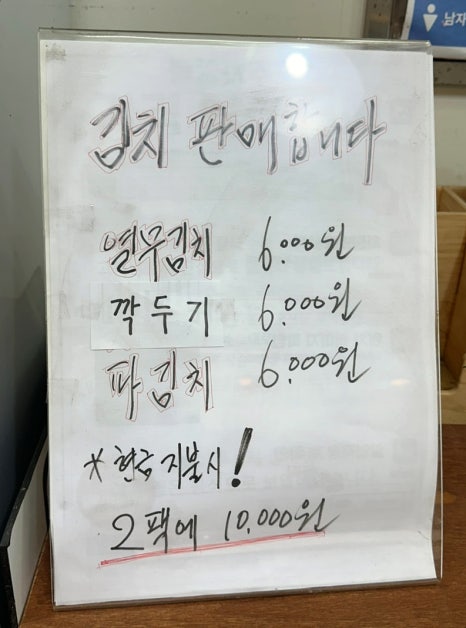 남자
김치 판매합니다
열무김치 6.000원
깍두기 6.000원
파김치 6.000원
* 현금 지불시!
2팩에 10.000원